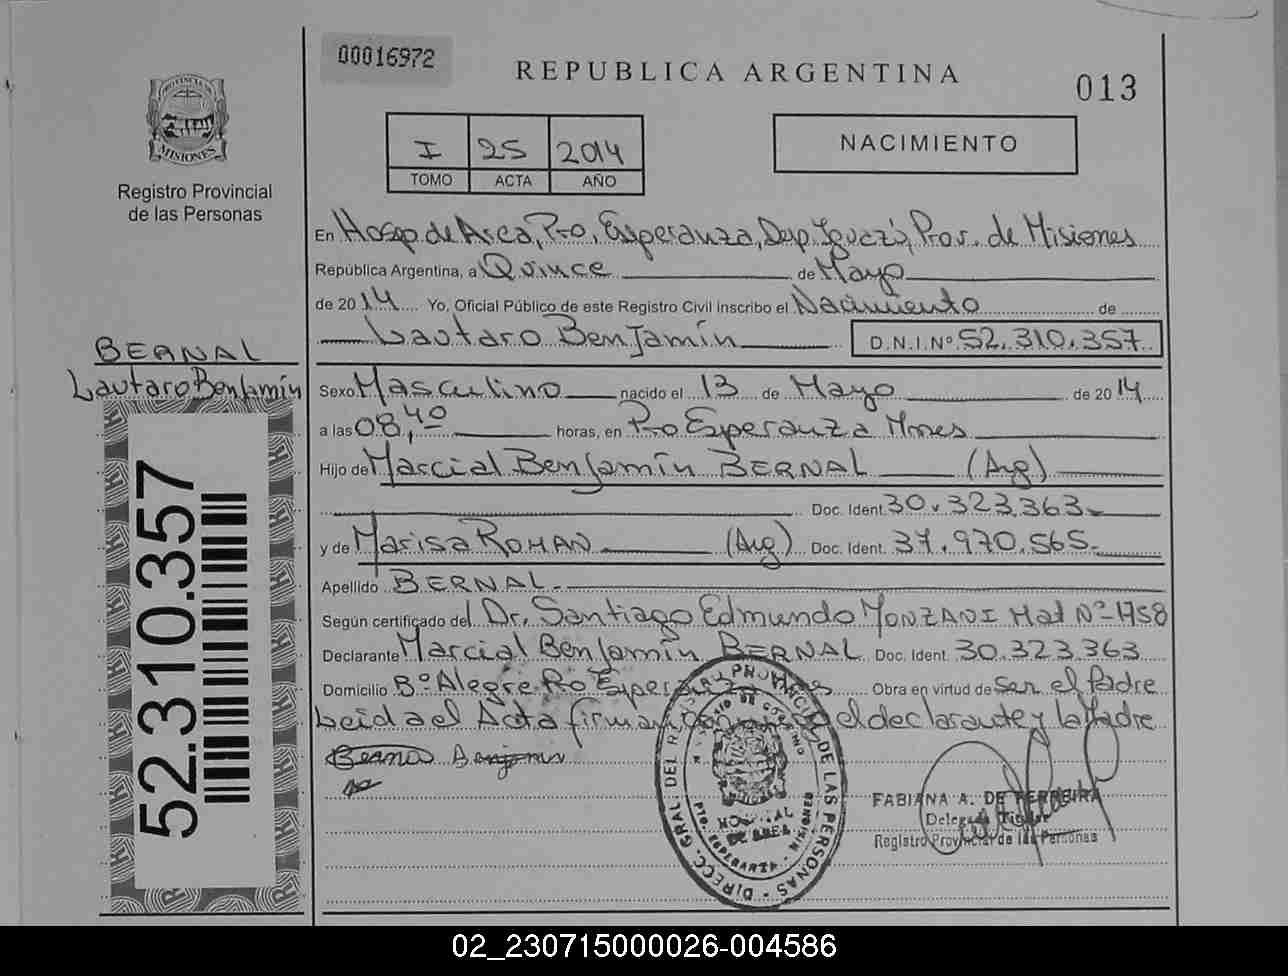 00016972
REPUBLICA ARGENTINA
013
PROVINCIA DE
MISIONES
Registro Provincial
de las Personas
I 25 2014
TOMO ACTA AÑO
NACIMIENTO
En Hosp. de Area, Pto. Esperanza, Dep. Iguazú, Prov. de Misiones
República Argentina, a Quince de Mayo
de 2014 Yo, Oficial Público de este Registro Civil inscribo el Nacimiento de
Lautaro Benjamín D.N.I.Nº 52.310.357
BERNAL
Lautaro Benjamín
52.310.357
Sexo Masculino nacido el 13 de Mayo de 2014
a las 08,40 horas, en Pto Esperanza Mnes
Hijo de Marcial Benjamín BERNAL (Arg)
Doc. Ident. 30.323.363
y de Marisa ROMAN (Arg) Doc. Ident. 37.970.565
Apellido BERNAL
Según certificado del Dr. Santiago Edmundo MONZANI Mat Nº 1758
Declarante Marcial Benjamín BERNAL Doc. Ident. 30.323.363
Domicilio Bº Alegre Pto Esperanza Mnes Obra en virtud de Ser el Padre
Leida el Acta firman el declarante y la Madre
Berna Benjamin
DIRECC. GRAL. DEL REGISTRO PROVINCIAL DE LAS PERSONAS
MINISTERIO DE GOBIERNO
HOSPITAL
DE AREA
PTO. ESPERANZA - MISIONES
FABIANA A. DE FERREIRA
Delegada Titular
Registro Provincial de las Personas
02_230715000026-004586